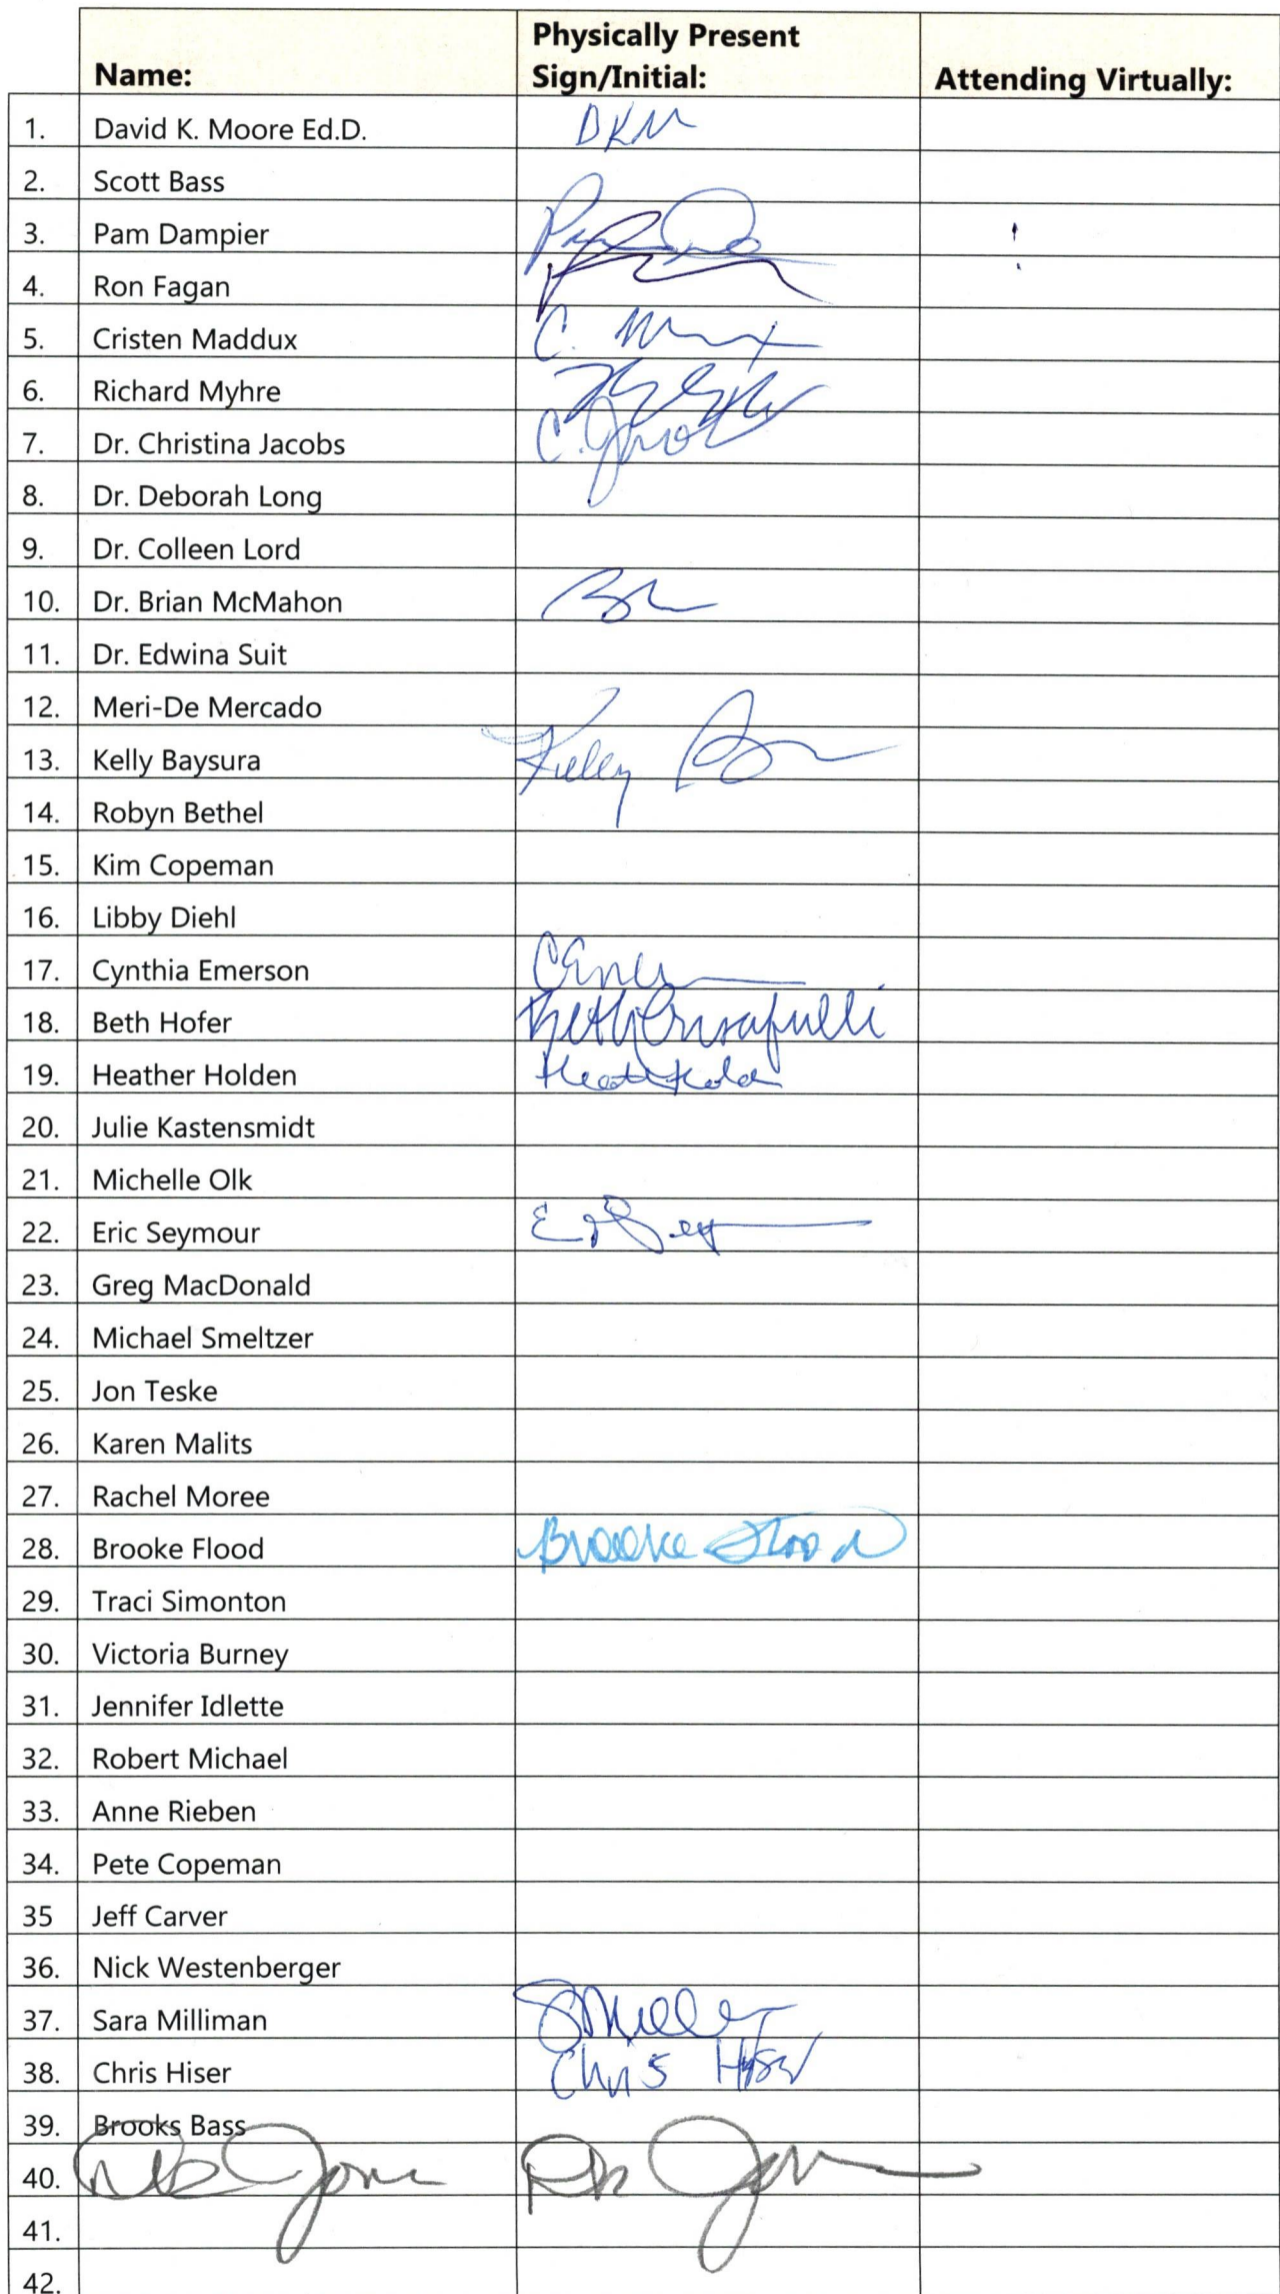 Name: Physically Present Sign/Initial: Attending Virtually:
1. David K. Moore Ed.D. DKM
2. Scott Bass
3. Pam Dampier
4. Ron Fagan
5. Cristen Maddux C.
6. Richard Myhre
7. Dr. Christina Jacobs C.
8. Dr. Deborah Long
9. Dr. Colleen Lord
10. Dr. Brian McMahon
11. Dr. Edwina Suit
12. Meri-De Mercado
13. Kelly Baysura Kelly
14. Robyn Bethel
15. Kim Copeman
16. Libby Diehl
17. Cynthia Emerson
18. Beth Hofer Beth Crisafulli
19. Heather Holden
20. Julie Kastensmidt
21. Michelle Olk
22. Eric Seymour
23. Greg MacDonald
24. Michael Smeltzer
25. Jon Teske
26. Karen Malits
27. Rachel Moree
28. Brooke Flood Brooke Flood
29. Traci Simonton
30. Victoria Burney
31. Jennifer Idlette
32. Robert Michael
33. Anne Rieben
34. Pete Copeman
35 Jeff Carver
36. Nick Westenberger
37. Sara Milliman
38. Chris Hiser Chris Hiser
39. Brooks Bass
40.
41.
42.